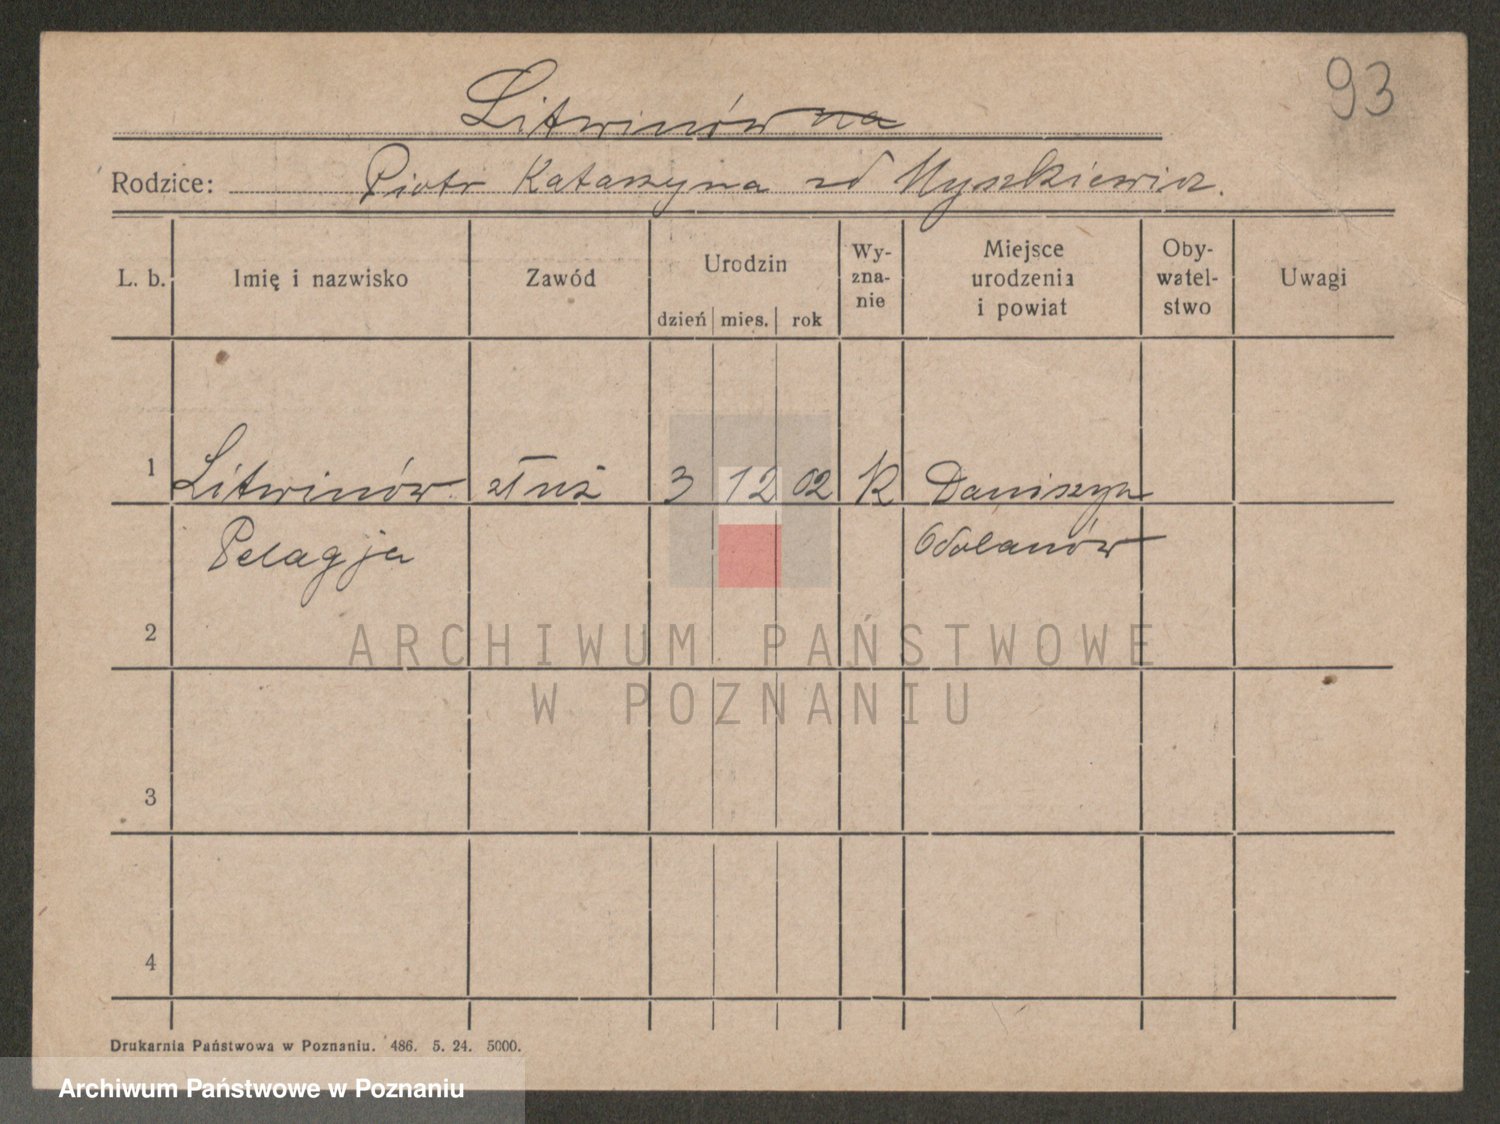 93
Litwinówna
Rodzice: Piotr Katarzyna zd Myszkiewicz.
L. b. Imię i nazwisko Zawód Urodzin dzień mies. rok Wyznanie Miejsce urodzenia i powiat Obywatelstwo Uwagi
1 Litwinów 3 12 02 K Daniszyn
Pelagja Odolanów
2
ARCHIWUM PAŃSTWOWE
W POZNANIU
3
4
Drukarnia Państwowa w Poznaniu. 486. 5. 24. 5000.
Archiwum Państwowe w Poznaniu